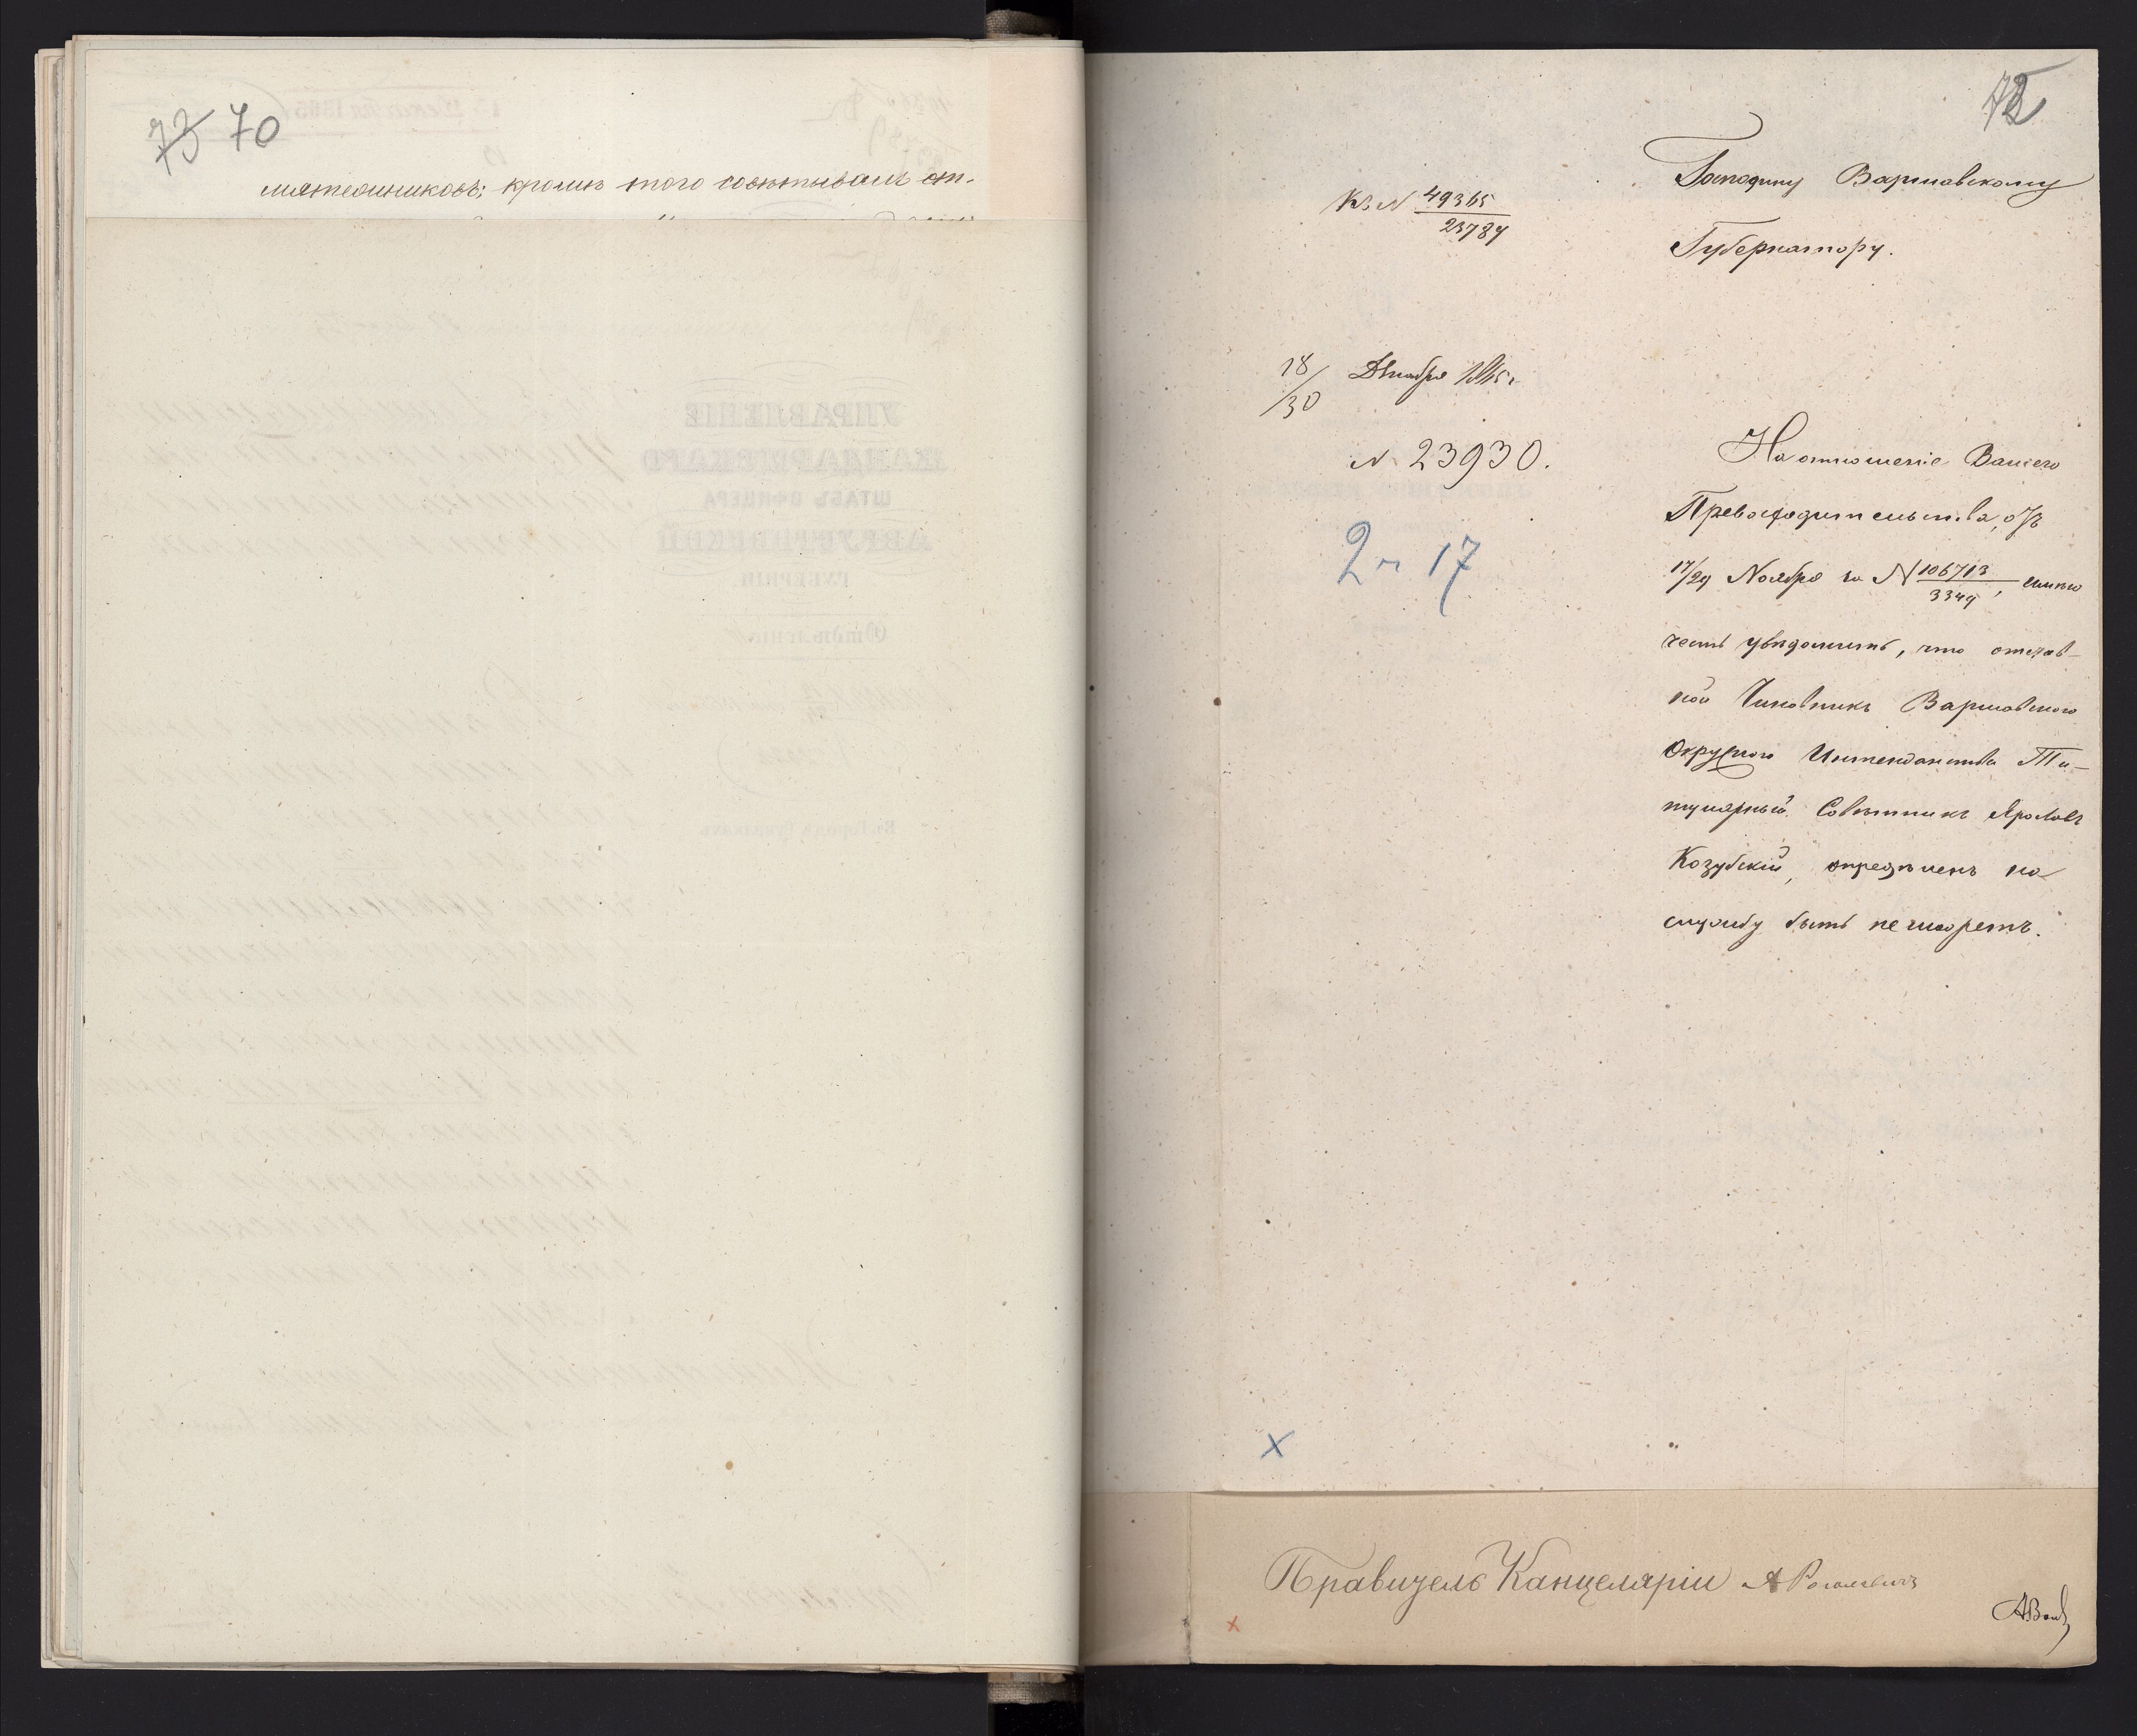 73 70
мятежниковъ; кромѣ того совѣтывалъ от-
72
Къ N 49365
23784
Господину Варшавскому
Губернатору.
18/30 Декабря 1865 г.
N 23930.
2 ч 17
На отношеніе Вашего
Превосходительства, отъ
17/29 Ноября за N 106713
3349, имѣю
честь увѣдомить, что отстав-
ной Чиновникъ Варшавскаго
Окружнаго Интендантства Ти-
тулярный Совѣтникъ Ярославъ
Козубскій, опредѣленъ на
службу быть не можетъ.
Х
Правитель Канцеляріи А
х